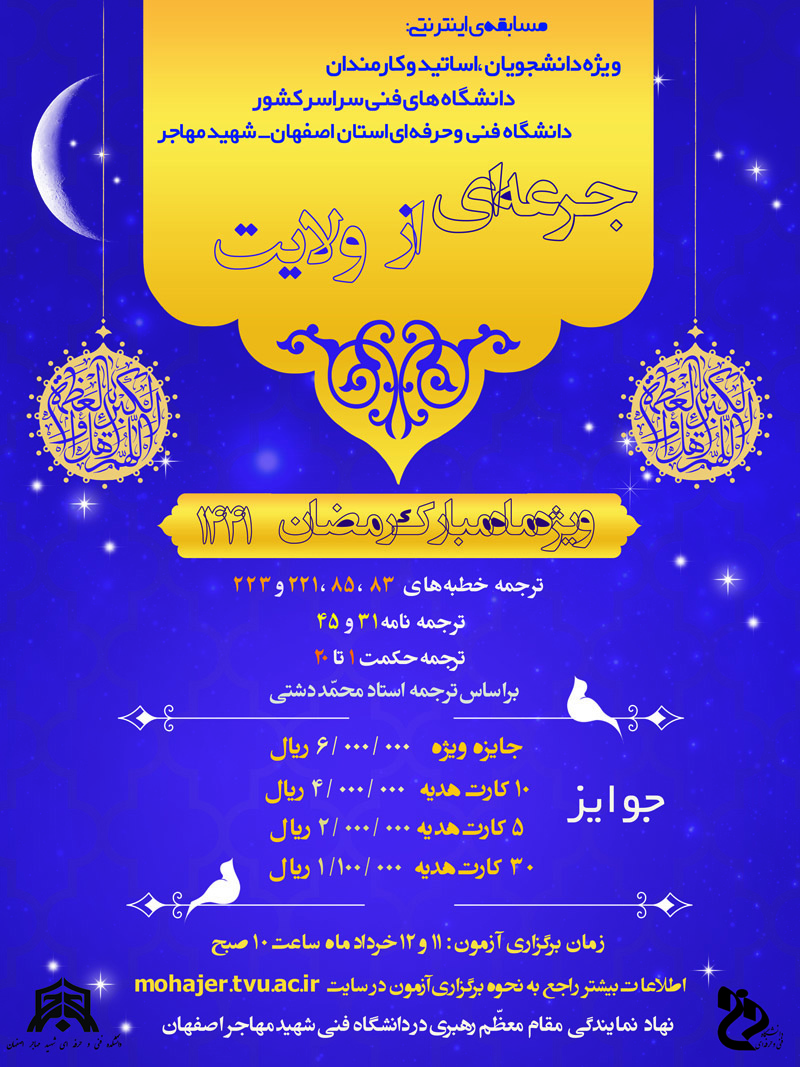 مسابقه‌ی اینترنتی:
ویژه دانشجویان ،اساتید و کارمندان
دانشگاه های فنی سراسر کشور
دانشگاه فنی و حرفه‌ای استان اصفهان_ شهید مهاجر
جرعه‌ای از ولایت
ویژه ماه مبارک رمضان ۱۴۴۱
ترجمه خطبه های ۸۳ ،۸۵ ،۲۲۱ و ۲۲۳
ترجمه نامه ۳۱ و ۴۵
ترجمه حکمت ۱ تا ۲۰
براساس ترجمه استاد محمّد دشتی
جوایز
جایزه ویژه ۶/۰۰۰/۰۰۰ ریال
۱۰ کارت هدیه ۴/۰۰۰/۰۰۰ ریال
۵ کارت هدیه ۲/۰۰۰/۰۰۰ ریال
۳۰ کارت هدیه ۱/۱۰۰/۰۰۰ ریال
زمان برگزاری آزمون : ۱۱ و ۱۲ خرداد ماه ساعت ۱۰ صبح
اطلاعات بیشتر راجع به نحوه برگزاری آزمون در سایت mohajer.tvu.ac.ir
نهاد نمایندگی مقام معظّم رهبری در دانشگاه فنی شهید مهاجر اصفهان
دانشگاه فنی و حرفه ای شهید مهاجر اصفهان
دانشگاه
فنی و حرفه‌ای